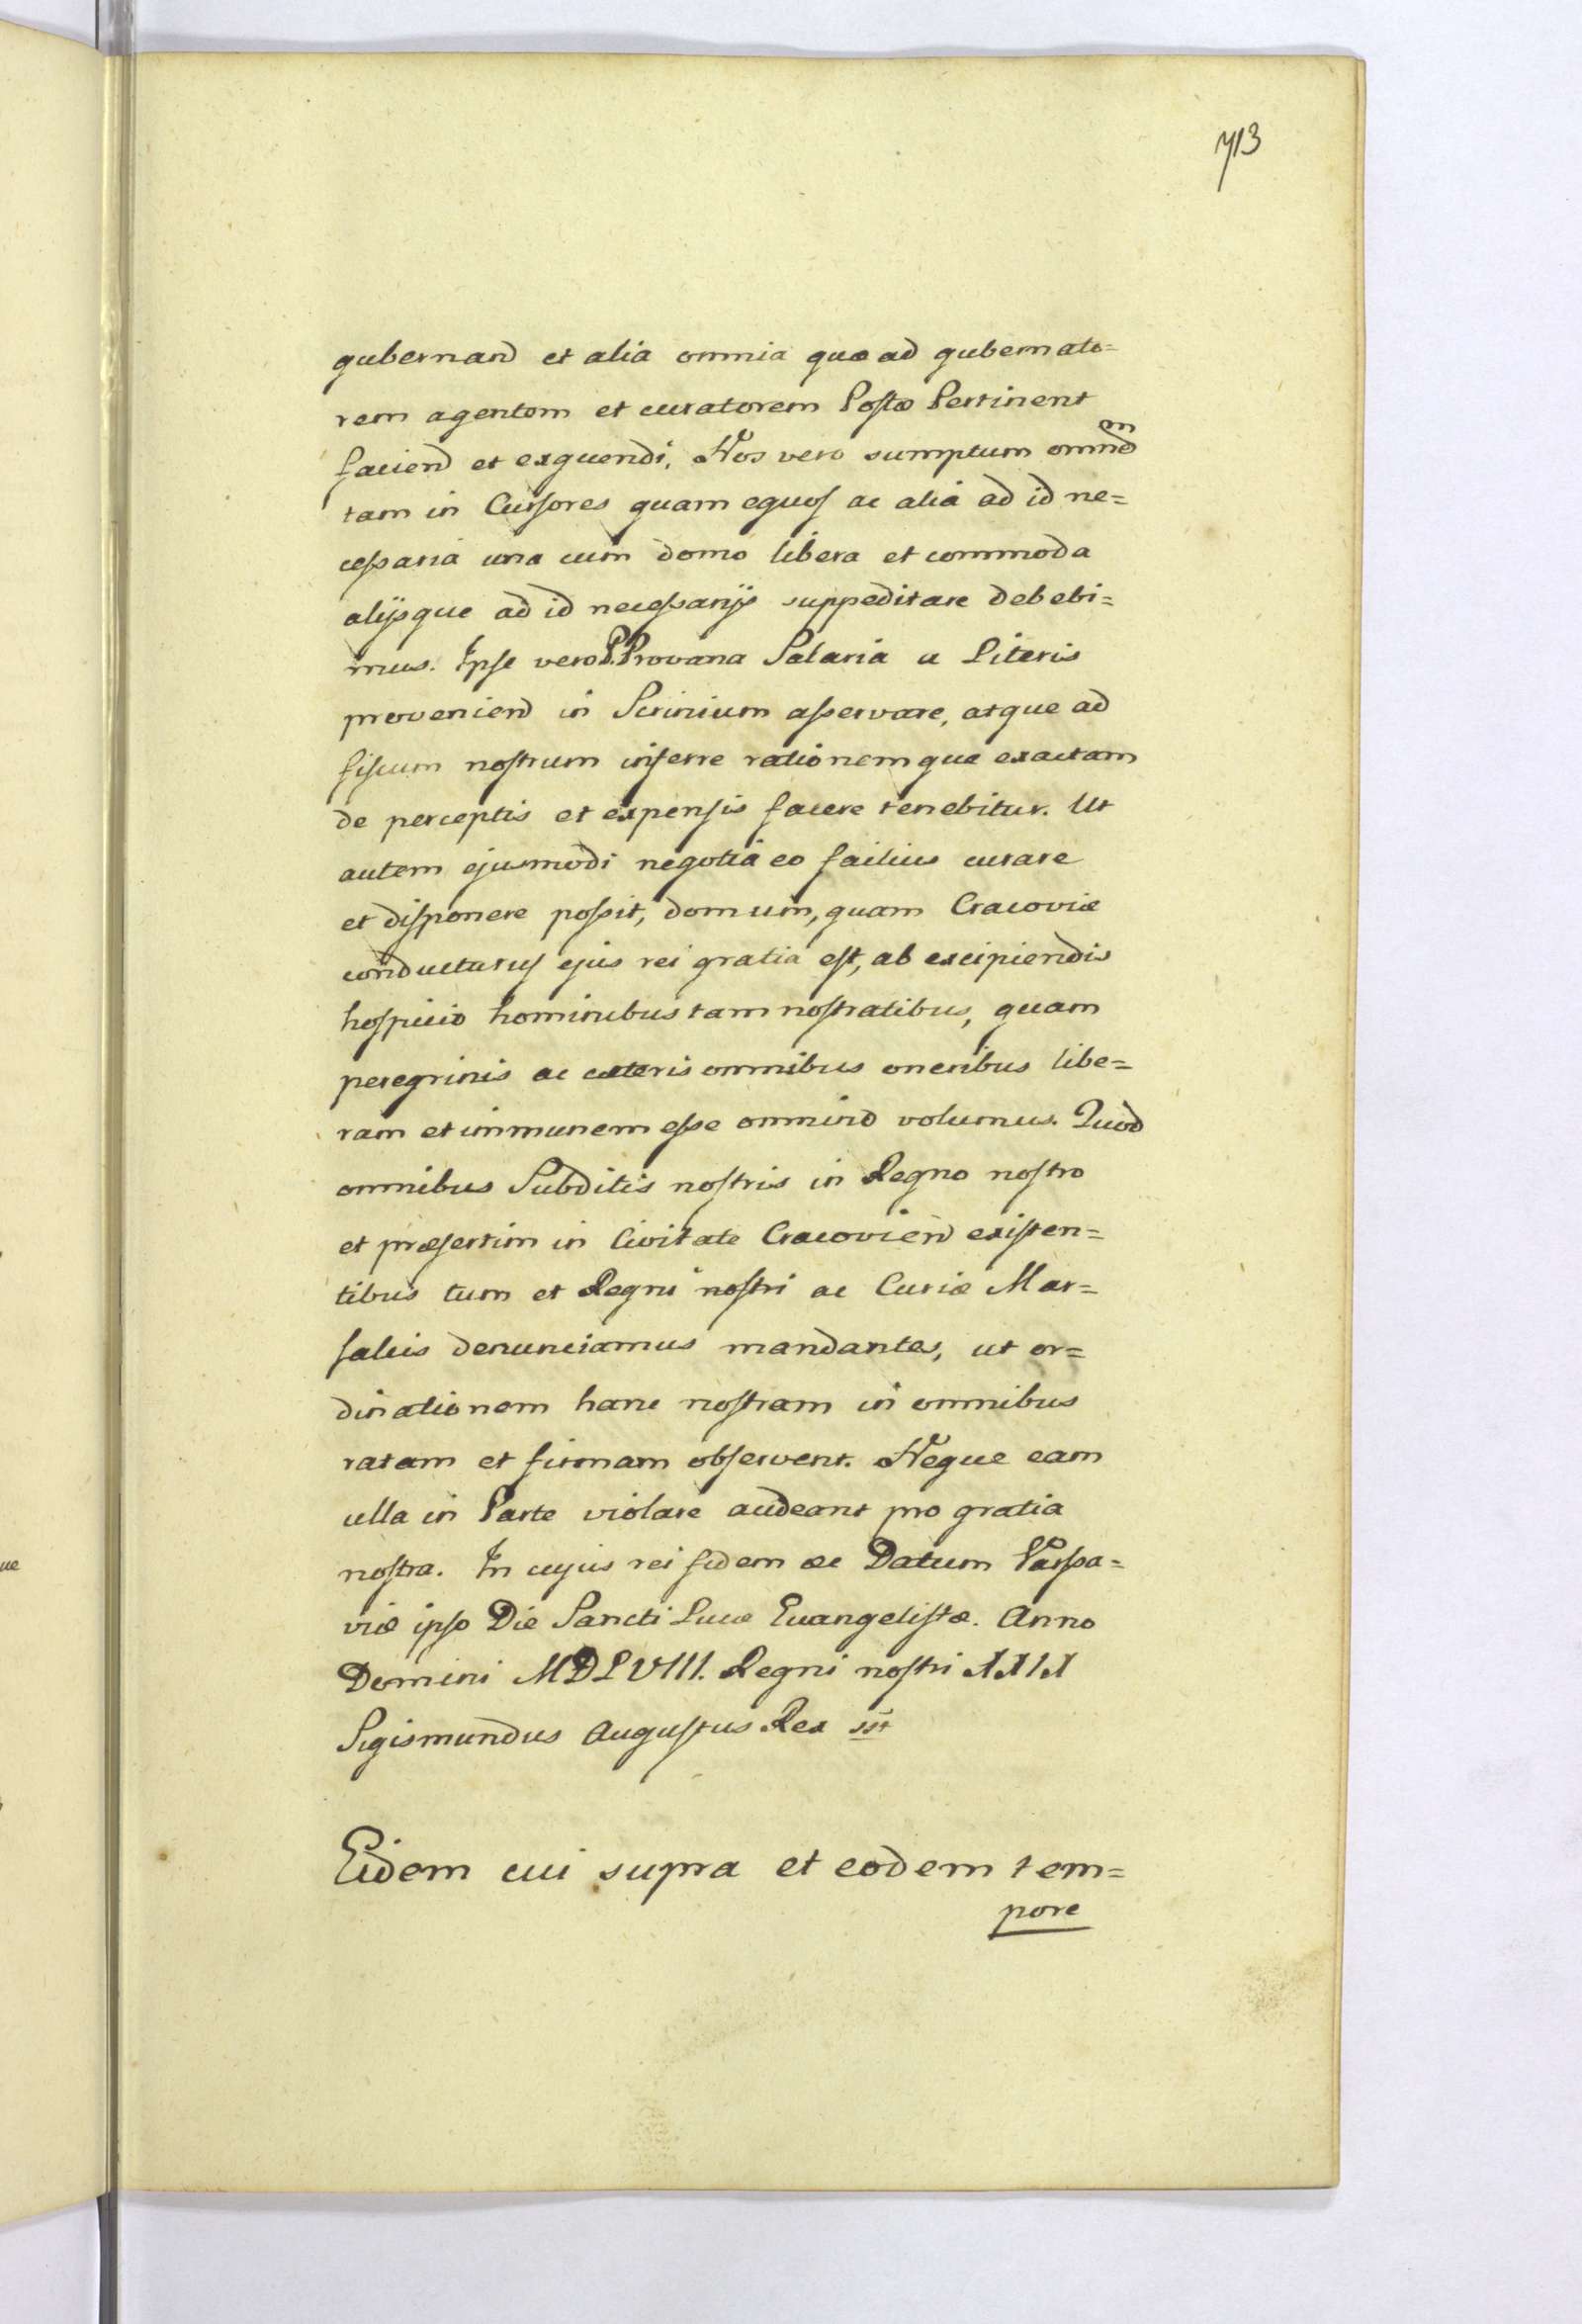 713
gubernand et alia omnia quæ ad gubernato=
rem agentem et curatorem Postæ Pertinent
faciend et exquendi. Nos vero sumptum omnem
tam in Cursores quam equos ac alia ad id ne=
cessaria una cum domo libera et commoda
alijsque ad id necessarijs suppeditare debebi=
mus. Ipse vero P. Provana Salaria a Literis
provenien in Scrinium asservare, atque ad
fiscum nostrum inferre rationemque exactam
de perceptis et expensis facere tenebitur. Ut
autem ejusmodi negotia eo failius curare
et disponere possit, domum, quam Cracoviæ
conducturus ejus rei gratia est, ab excipiendis
hospicio hominibus tam nostratibus, quam
peregrinis ac cæteris omnibus oneribus libe=
ram et immunem esse omnino volumus. Quod
omnibus Subditis nostris in Regno nostro
et præsertim in Civitate Cracovien existen=
tibus tum et Regni nostri ac Curiæ Mar=
salcis denunciamus mandantes, ut or=
dinationem hanc nostram in omnibus
ratam et firmam observent. Neque eam
ulla in Parte violare audeant pro gratia
nostra. In cujus rei fidem &c Datum Varssa=
viæ ipso Die Sancti Lucæ Evangelistæ. Anno
Domini MDLVIII. Regni nostri XXIX
Sigismundus Augustus Rex sst
Eidem cui supra et eodem tem=
pore